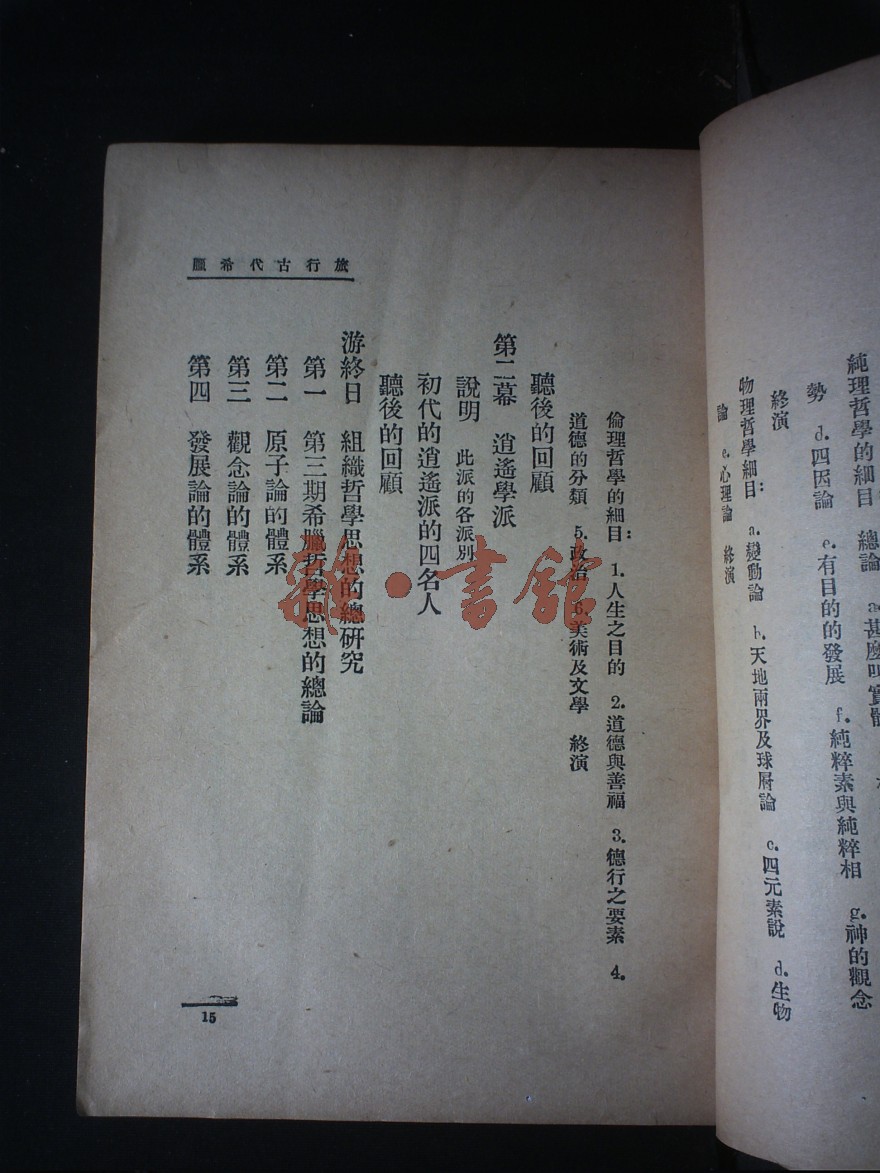 純理哲學的細目 總論 a.甚麼叫實體
勢 d.四因論 e.有目的的發展 f.純粹素與純粹相 g.神的觀念
終演
物理哲學細目： a.變動論 b.天地兩界及球層論 c.四元素說 d.生物
論 e.心理論 終演
旅行古代希臘
倫理哲學的細目： 1.人生之目的 2.道德與善福 3.德行之要素 4.
道德的分類 5.政治 6.美術及文學 終演
聽後的回顧
第二幕 逍遙學派
說明 此派的各派別
初代的逍遙派的四名人
聽後的回顧
游終日 組織哲學思想的總研究
第一 第三期希臘哲學思想的總論
第二 原子論的體系
第三 觀念論的體系
第四 發展論的體系
15
雜·書館